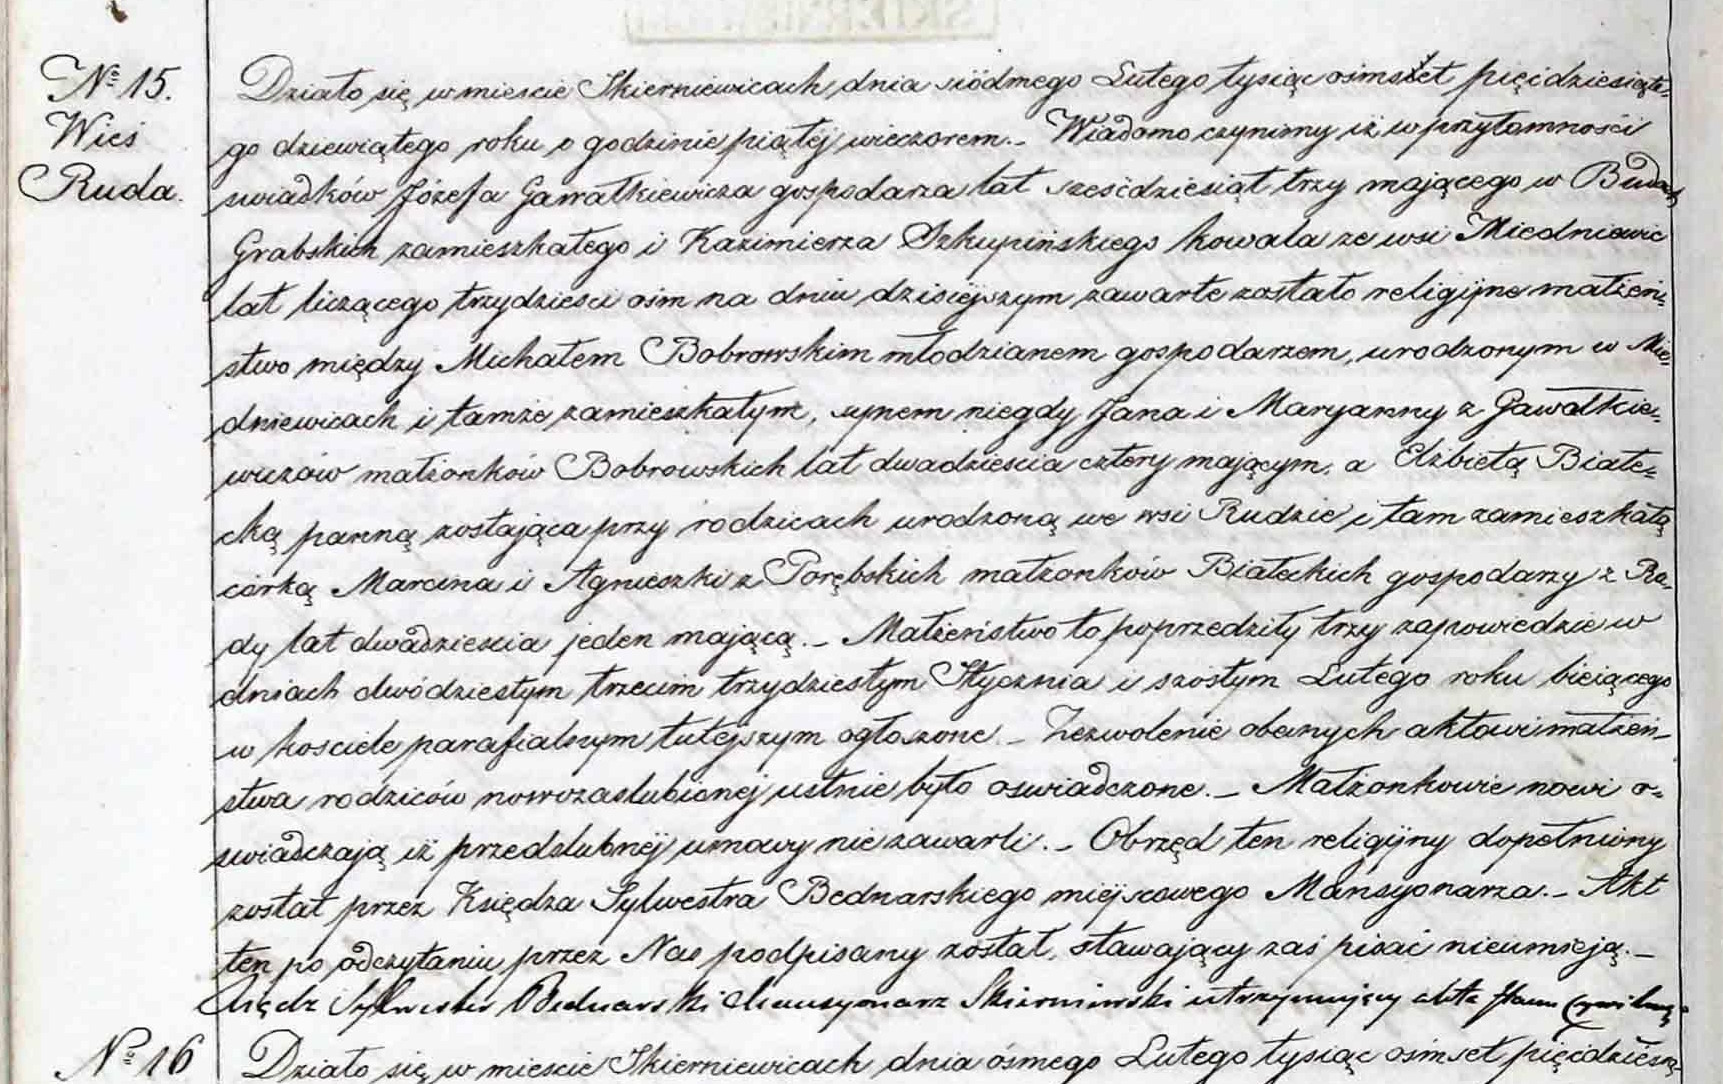 № 15.
Wieś
Ruda.
Działo się w mieście Skierniewicach dnia siódmego Lutego tysiąc ośmset pięćdziesiąte=
go dziewiątego roku o godzinie piątéj wieczorem._ Wiadomo czynimy iż w przytomności
swiadków Józefa Gawałkiewicza gospodarza lat sześćdziesiąt trzy mającego w Budach
Grabskich zamieszkałego i Kazimierza Szkupińskiego kowala ze wsi Miedniewic
lat liczącego trzydziesci ośm na dniu dzisiéjszym zawarte zostało religijne małżeń=
stwo między Michałem Bobrowskim młodzianem gospodarzem, urodzonym w Mie=
dniewicach i tamże zamieszkałym, synem niegdy Jana i Maryanny z Gawałkie=
wiczów małżonków Bobrowskich lat dwadzieścia cztery mającym, a Elżbietą Białe=
cką panną zostającą przy rodzicach urodzoną we wsi Rudzie i tam zamieszkałą
córką Marcina i Agnieszki z Porębskich małżonków Białeckich gospodarzy z Ru=
dy lat dwadzieścia jeden mającą._ Małżeństwo to poprzedziły trzy zapowiedzie w
dniach dwódziestym trzecim trzydziestym Stycznia i szóstym Lutego roku bieżącego
w kosciele parafialnym tutejszym ogłoszone._ Zezwolenie obecnych aktowi małżeń_
stwa rodziców nowozaslubionej ustnie było oswiadczone._ Małżonkowie nowi o=
swiadczają iż przedslubnéj umowy nie zawarli._ Obrzęd ten religijny dopełniony
został przez Księdza Sylwestra Bednarskiego miejscowego Mansyonarza._ Akt
ten po odczytaniu przez Nas podpisany został, stawający zaś pisać nieumieją._
Ksiądz Sylwester Bednarski Mansyonarz Skierniewski utrzymujący akta stanu Cywilnego
№ 16
Działo się w mieście Skierniewicach dnia ósmego Lutego tysiąc ośmset pięćdziesią